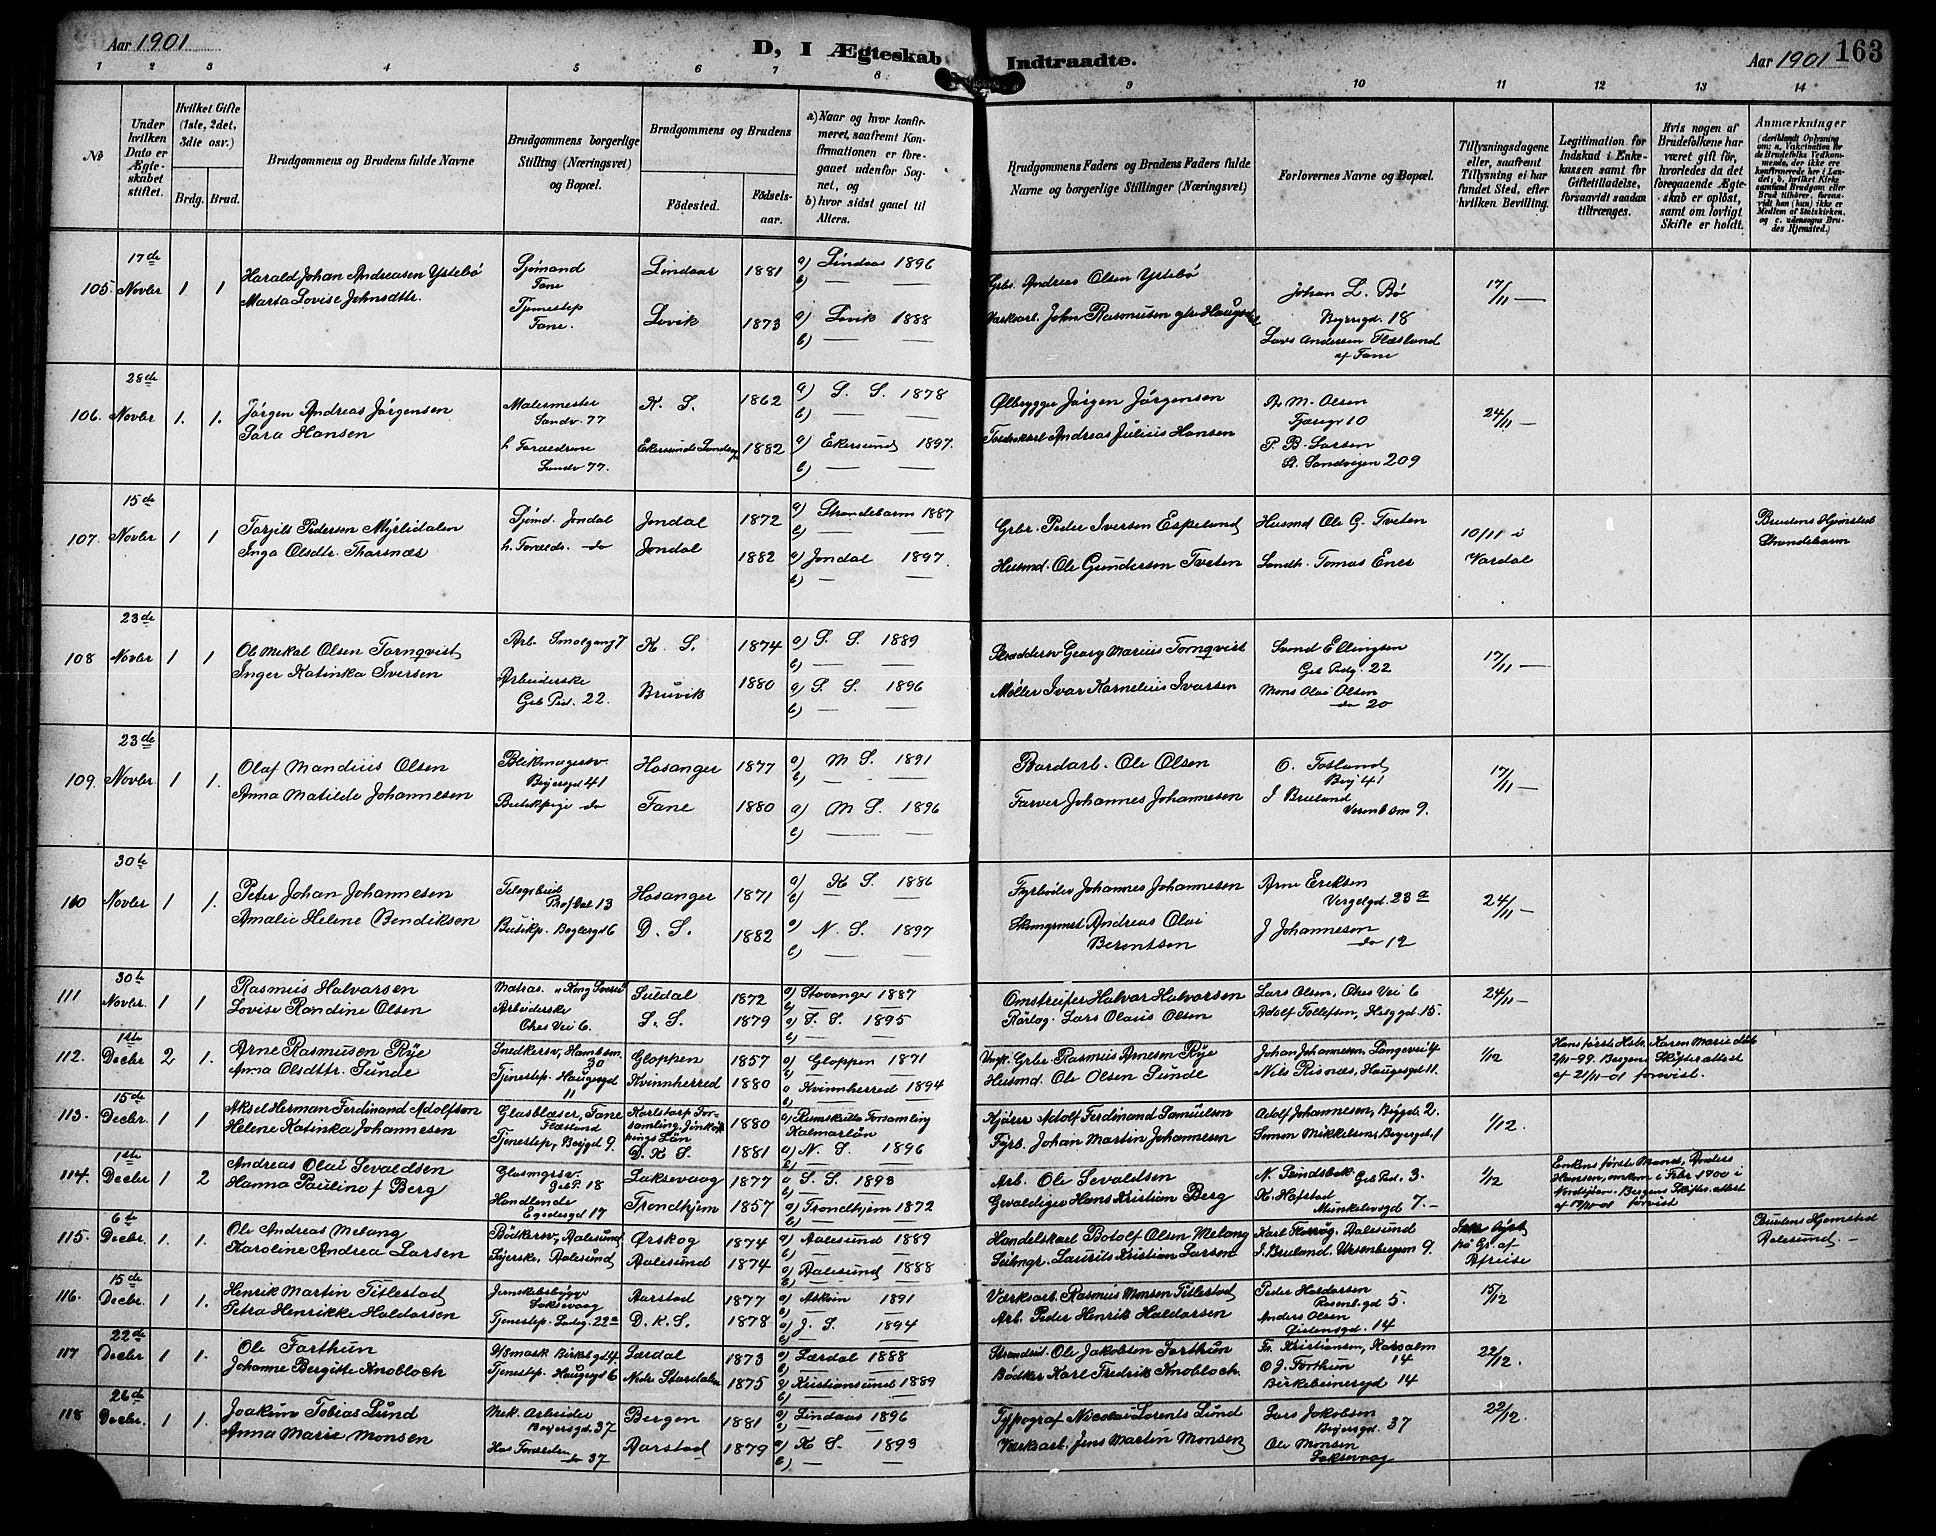 Aar 1901
D, I Ægteskab Indtraadte.
Aar 1901
163
1 2 3 4 5 6 7 8 9 10 11 12 13 14
No
Under hvilken Dato er Ægteskabet stiftet.
Hvilket Gifte (1ste, 2det, 3die osv.)
Brdg. Brud.
Brudgommens og Brudens fulde Navne
Brudgommens borgerlige Stilling (Næringsvei) og Bopæl.
Brudgommens og Brudens
Fødested. Fødselsaar.
a) Naar og hvor konfirmeret, saafremt Konfirmationen er foregaaet udenfor Sognet, og
b) hvor sidst gaaet til Alters.
Brudgommens Faders og Brudens Faders fulde Navne og borgerlige Stillinger (Næringsvei)
Forlovernes Navne og Bopæl.
Tillysningsdagene eller, saafremt Tillysning ei har fundet Sted, efter hvilken Bevilling.
Legitimation for Indskud i Enkekassen samt for Giftetilladelse, forsaavidt saadan tiltrænges.
Hvis nogen af Brudefolkene har været gift før, hvorledes da det foregaaende Ægteskab er opløst, samt om lovligt Skifte er holdt.
Anmærkninger (deriblandt Oplysning om: a. Vakcination for de Brudefolks Vedkommende, der ikke ere konfirmerede her i Landet; b. hvilket Kirkesamfund Brudgom eller Brud tilhører, forsaavidt han (hun) ikke er Medlem af Statskirken, og c. udensogns Brudes Hjemsted.)
105. 17de Novbr 1 1
Harald Johan Andreasen Ystebø
Marta Lovise Johnsdttr.
Sjømand Fane
Tjenestep Fane.
Lindaas 1881
Levik 1873
a) Lindaas 1896
b) — —
a) Levik 1888
b) — —
Grbr. Andreas Olsen Ystebø
Værksarb. John Rasmusen
Johan L. Bø
Beyersgd. 18
Lars Andersen Flæsland
af Fane
17/11 —
106. 28de Novbr 1. 1.
Jørgen Andreas Jørgensen
Sara Hansen
Malermester
Sandv. 77
h. Forældrene
Sandv 77.
K. S. 1862
Ekersunds Landsogn 1882
a) S. S. 1878
b) — —
a) Ekersund 1897.
b) — —
Ølbrygger Jørgen Jørgensen
Andreas Julius Hansen
A. M. Olsen
10
P. B. Larsen
St. Sandvigen 209
24/11 —
107. 15de Novbr 1 1
Torjils Pedersen Myrlidalen
Inga Olsdtr. Tharsnæs
Sjømd. Jondal
h. Forælds. do
Jondal 1872
Jondal 1882
a) Strandebarm 1887
b) — —
a) Jondal 1897.
b) — —
Grbr. Peder Iversen Espeland
Husmd. Ole Gundersen Tveten
Husmd Ole G. Tveten
Landh. Tomas Enes
10/11 i
Brudens Hjemsted
Strandebarm
108 23de Novbr 1 1
Ole Mikal Olsen Tornqvist
Inger Katinka Iversen
Arb. Smalgang 7
Arbeiderske
Geb Pd. 22.
K. S. 1874
Bruvik 1880
a) S. S. 1889
b) — —
a) S. S. 1896
b) — —
Skræddersv Georg Marius Tornqvist
Møller Ivar Kornelius Ivarsen
Svend Ellingsen
Geb Pedg. 22
Mons Olai Olsen
do 20
17/11 —
109. 23de Novbr 1 1.
Olaf Mandius Olsen
Anna Matilde Johannesen
Blikmagersv.
Beyersgd 41
Butikpige do
Hosanger 1877
Fane 1880
a) M S. 1891
b) — —
a) M S. 1896
b) — —
Bordarb. Ole Olsen
Farver Johannes Johannesen
O. Fosland
Bey 41
J Bruland
9.
17/11 —
110 30te Novbr 1 1.
Peter Johan Johannesen
Amalie Helene Bendiksen
13
Butikp. Beyersgd 6
Hosanger 1871
D. S. 1882
a) K S. 1886
b) — —
a) N. S. 1897
b) — —
Fyrbøder Johannes Johannesen
Andreas Olai
Berentsen
Arne Eriksen
Vergelgd. 23 a
J Johannesen
do 12
24/11 —
111 30te Novbr. 1 1
Rasmus Halvarsen
Lovise Randine Olsen
Matros. "Kong Sverre"
Arbeiderske
Ches Vei 6.
Suldal 1872
S. S. 1879
a) Stavanger 1887
b) — —
a) S. S. 1895
b) — —
Omstreifer Halvor Halvorsen
Rørlæg. Lars Olaus Olsen
Lars Olsen, Ches Vei 6
Adolf Tollefsen, Helggd 15.
24/11 —
112. 1ste Decbr 2 1.
Arne Rasmusen Rye
Anna Olsdttr. Sunde
Snedkersv. 30
Tjenestep. Haugegd 11
Gloppen 1857
Kvinnherred 1880
a) Gloppen 1871
b) — —
a Kvinnherred 1894
b) — —
Grbr Rasmus Arnesen Rye
Husmd. Ole Olsen Sunde
Johan Johannesen, Langevei 4
Nils Risnæs, Haugesgd 11.
1/12
Hans første Hst. Karen Marie død
2/11-99. Bergens Skifteattest
af 21/11-01 forevist.
113. 15de Decbr 1 1
Aksel Herman Ferdinand Adolfson
Helene Katinka Johannesen
Glasblæser, Fane
Flæsland
Tjenestep, Beygd 9.
Karlstorp Forsamling, Jønkøpings Län 1880
D. K S. 1881
a) Rumskulla Forsamling
Kalmarlän
a) N. S. 1896
b) — —
Kjører Adolf Ferdinand Samuelson
Fyrb. Johan Martin Johannesen
Adolf Johannesen, Beygd. 2.
Simon Mikkelsen, Beyersgd. 1
1/12.
114. 1ste Decbr 1 2
Andreas Olai Sevaldsen
Hanna Pauline f Berg
Glasmgrsv.
Geb P. 18
Handlende
Egedesgd 17
Laksevaag 1877
Trondhjem 1857
a S. S. 1893
b) — —
a) Trondhjem 1872
b) — —
Arb. Ole Sevaldsen
Gevaldiger Hans Kristian Berg
N. Geb Ped. 3.
K. Hofstad
Munkelivsgd 7. —
1/12
Enkens første Mand, Anders
Hansen, omkom i Febr 1900 i
Nordsjøen. Bergens Skifteattest
af 19/10-01 forevist
115. 6te Decbr 1. 1.
Ole Andreas Melang
Karoline Andrea Larsen
Bødkersv, Aalesund
Syerske, Aalesund
Ørskog 1874
Aalesund 1874
a) Aalesund 1889
b) — —
a) Aalesund 1888
b) — —
Handelskarl Botolf Olsen Melang
Seilmgr. Laurits Kristian Larsen
Karl Aalesund
J. Bruland, Vesenbergsm 9.
Ikke lyst
på Gr. af
Afreise
Brudens Hjemsted
Aalesund. —
116. 15de Decbr. 1 1.
Henrik Martin Titlestad
Petra Henrikke Haldorsen
Jernskibsbygger
Laksevaag
Tjenestep. Ladeg. 22 a
Aarstad 1877
D. K. S. 1878
a) Askøin 1891
b) — —
a) J. S. 1894
b) — —
Værksarb. Rasmus Monsen Titlestad
Arb. Peder Henrik Haldorsen
Peder Haldorsen
Rosenbgd 5.
Anders Olsen
Øistensgd. 14
15/12
117 22de Decbr 1 1.
Ole Forthun
Johanne Bergitte Knobloch
Birkebgd 14.
Tjenestep. Haugegd 6
Lærdal 1873
Nedre Stordalen 1875
a) Lærdal 1888
b) — —
a) Kristiansund 1889
b) — —
Strandsid. Ole Jakobsen Forthun
Bødker Karl Fredrik Knobloch.
Fr. Kristiansen, Kapsalm 14
O J. Forthun
Birkebeinersgd 14
22/12.
118 26de Decbr. 1 1.
Joakim Tobias Lund
Anna Marie Monsen
Mek. Arbeider
Beyersgd. 37
Hos Forældrene
do 37
Bergen 1881
Aarstad 1879
a) Lindaas 1896
b) — —
a) K S. 1893
b) — —
Typograf Nicolai Lorents Lund
Værksarb. Jens Martin Monsen
Lars Jakobsen
Beyersgd. 37
Ole Monsen
Laksevaag
22/12.